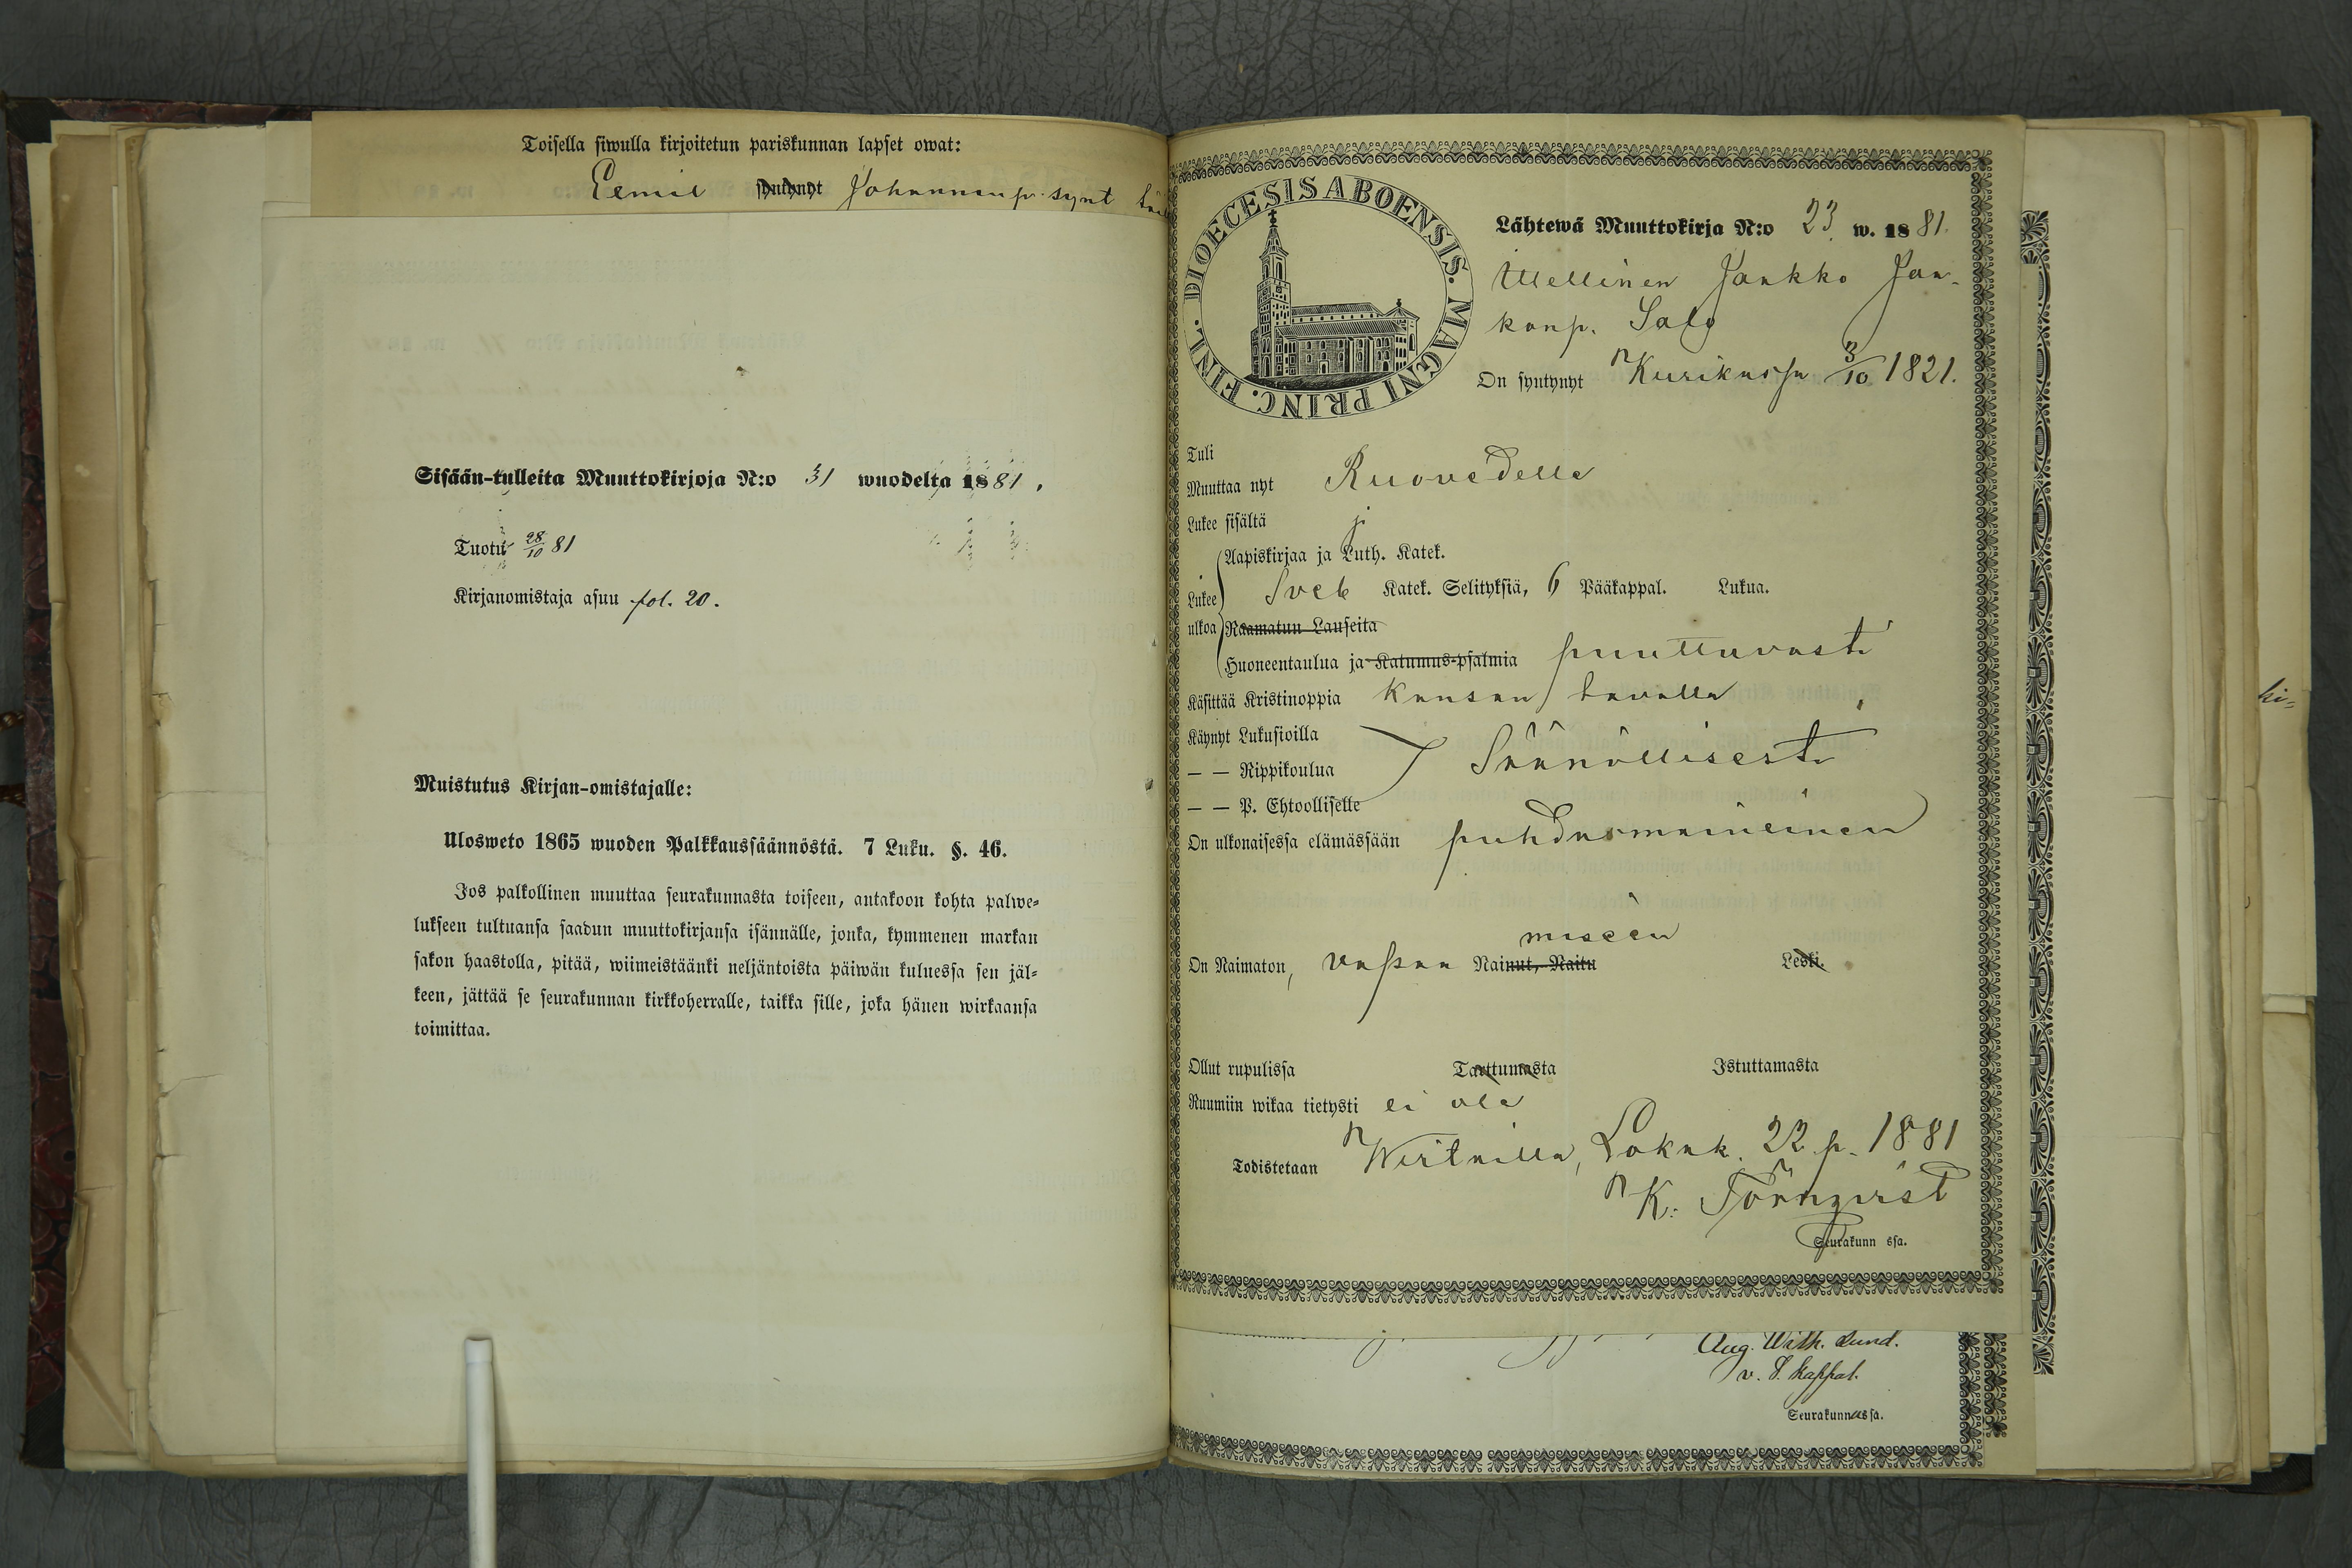 Toisella siwulla kirjoitetun pariskunnan lapset owat:
Eemil syntynyt Johannanp. synt
Sisään-tulleita Muuttokirjoja N:o 31 wuodelta 1881.
Tuotu 28/10 81
Kirjanomistaja asuu fol. 20.
Muistutus Kirjan-omistajalle:
Ulosweto 1865 wuoden Palkkaussäännöstä. 7 Luku. §. 46.
Jos palkollinen muuttaa seurakunnasta toiseen, antakoon kohta palwe-
lukseen tultuansa saadun muuttokirjansa isännälle, jonka, kymmenen markan
sakon haastolla, pitää, wiimeistäänki neljäntoista päiwän kuluessa sen jäl-
keen, jättää se seurakunnan kirkkoherralle, taikka sille, joka hänen wirkaansa
toimittaa.
DIOECESIS ABOENSIS. MAGNI PRINC. FINL.
Lähtewä Muuttokirja N:o 23 w. 1881.
Itellinen Jaakko Jaa-
konp. Salo
On syntynyt Kurikassa 3/10 1821.
Tuli
Muuttaa nyt Ruovedelle
Lukee sisältä
Aapiskirjaa ja Luth. Katek.
Lukee ulkoa Sveb Katek. Selityksiä, 6 Pääkappal. Lukua.
Raamatun Lauseita
Huoneentaulua ja Katumus-psalmia puuttuvasti
Käsittää Kristinoppia kansan tavalla
Käynyt Lukusioilla
— — Rippikoulua Säännöllisesti
— — P. Ehtoolliselle
On ulkonaisessa elämässään puhdasmaineinen
miseen
On Naimaton, vapaa Nainut, Naitu Leski.
Ollut rupulissa Tarttumasta Istuttamasta
Ruumiin wikaa tietysti ei ole
Todistetaan Wirtailla, Lokak. 22 p. 1881
K. Törnqvist
Seurakunn ssa.
Aug. Wilh. Lund.
v. S. kappal.
Seurakunnassa.